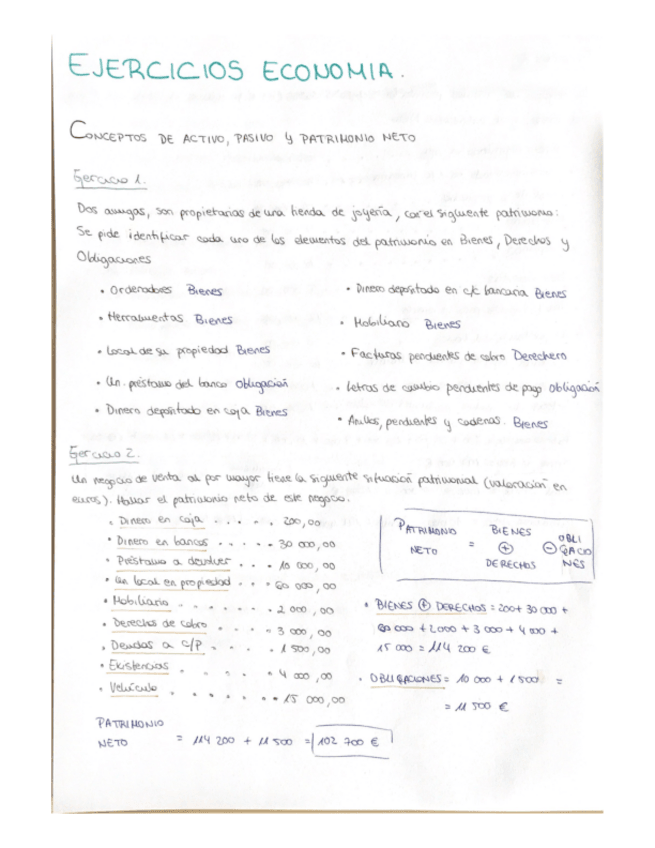 EJERCICIOS ECONOMIA.
CONCEPTOS DE ACTIVO, PASIVO Y PATRIMONIO NETO
Ejercicio 1.
Dos amigas, son propietarias de una tienda de joyería, con el siguiente patrimonio:
Se pide identificar cada uno de los elementos del patrimonio en Bienes, Derechos y
Obligaciones
• Ordenadores Bienes
• Herramientas Bienes
• Local de su propiedad Bienes
• Un préstamo del banco Obligación
• Dinero depositado en caja Bienes
• Dinero depositado en c/c bancaria Bienes
• Mobiliario Bienes
• Facturas pendientes de cobro Derechero
• Letras de cambio pendientes de pago Obligación
• Anillos, pendientes y cadenas. Bienes
Ejercicio 2.
Un negocio de venta al por mayor tiene la siguiente situación patrimonial (valoración en
euros). Hallar el patrimonio neto de este negocio.
• Dinero en caja . . . . . 200,00
• Dinero en bancos . . . . . 30 000,00
• Préstamo a devolver . . . 10 000,00
• Un local en propiedad . . . 60 000,00
• Mobiliario . . . . . . 2 000,00
• Derechos de cobro . . . . 3 000,00
• Deudas a C/P . . . . . 1 500,00
• Existencias . . . . . 4 000,00
• Vehículo . . . . . . . 15 000,00
PATRIMONIO NETO = BIENES + DERECHOS - OBLIGACIONES
• BIENES + DERECHOS = 200 + 30 000 +
60 000 + 2000 + 3 000 + 4 000 +
15 000 = 114 200 €
• OBLIGACIONES = 10 000 + 1 500 =
= 11 500 €
PATRIMONIO
NETO = 114 200 + 11 500 = 102 700 €